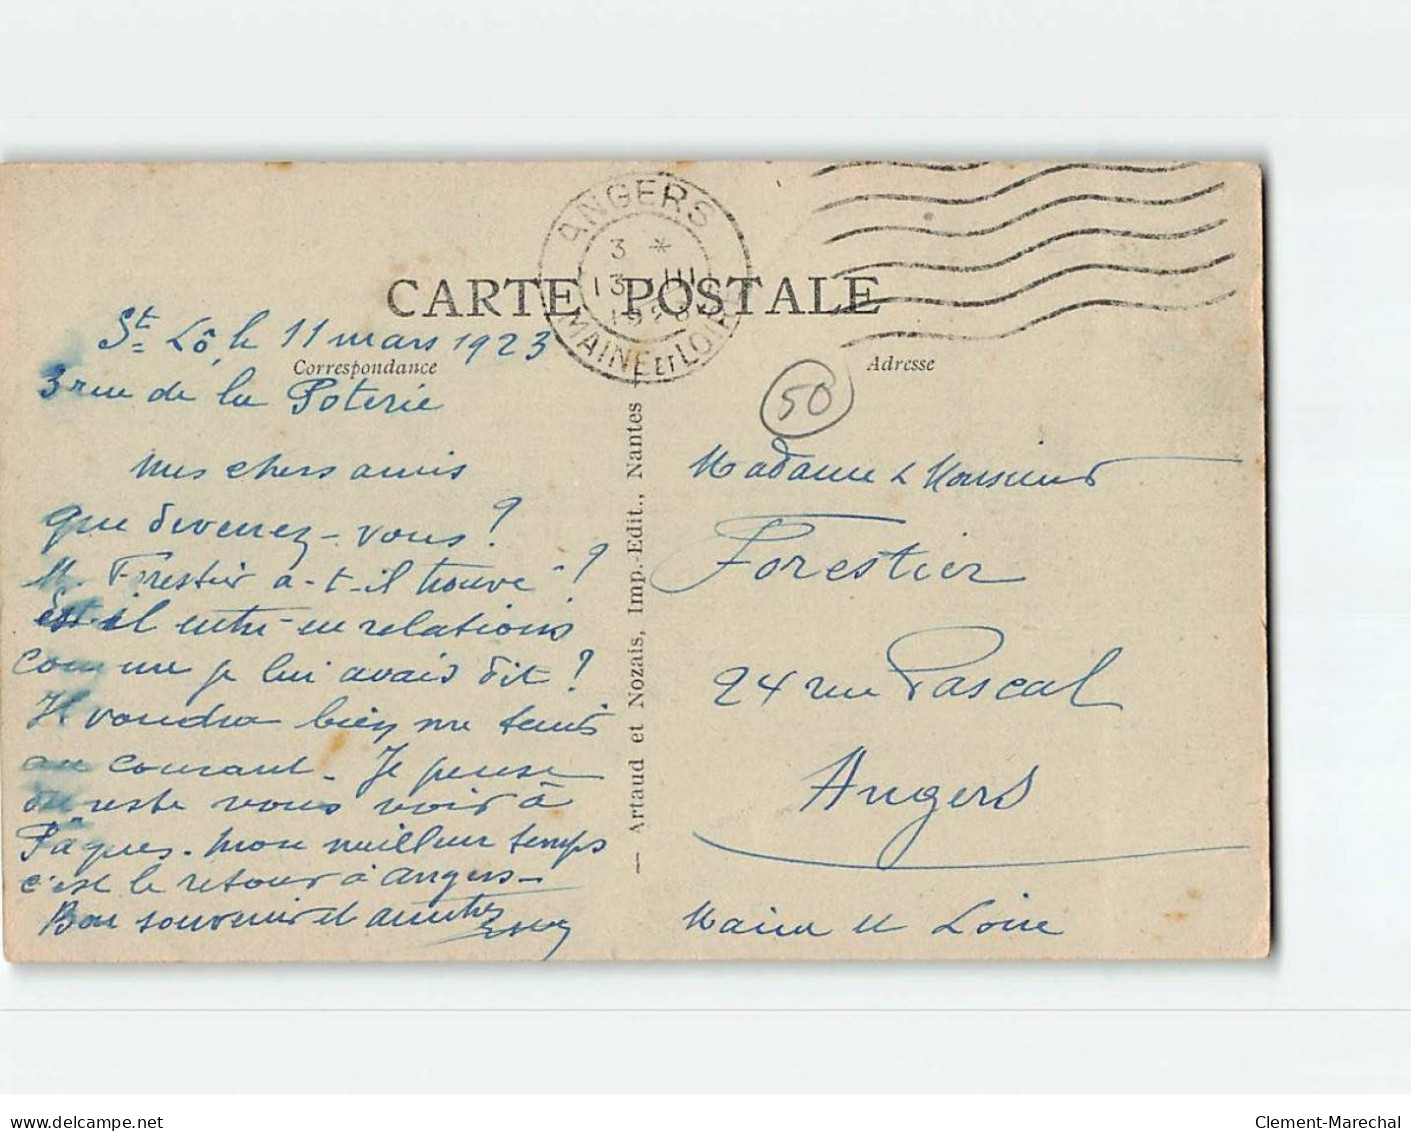 ANGERS
3 *
13 III
MAINE ET LOIRE
CARTE POSTALE
St Lô, le 11 mars 1923
Correspondance
3 rue de la Poterie
Mes chers amis
que devenez-vous?
M. Forestier a-t-il trouvé?
Est-il entré en relations
comme je lui avais dit?
Il voudra bien me tenir
au courant. Je pense
du reste vous voir à
Pâques. Mon meilleur temps
c'est le retour à Angers
Bon souvenir et amitiés
Artaud et Nozais, Imp.-Edit., Nantes
Adresse
50
Madame & Monsieur
Forestier
24 rue Pascal
Angers
Maine et Loire
www.delcampe.net
Clement-Marechal